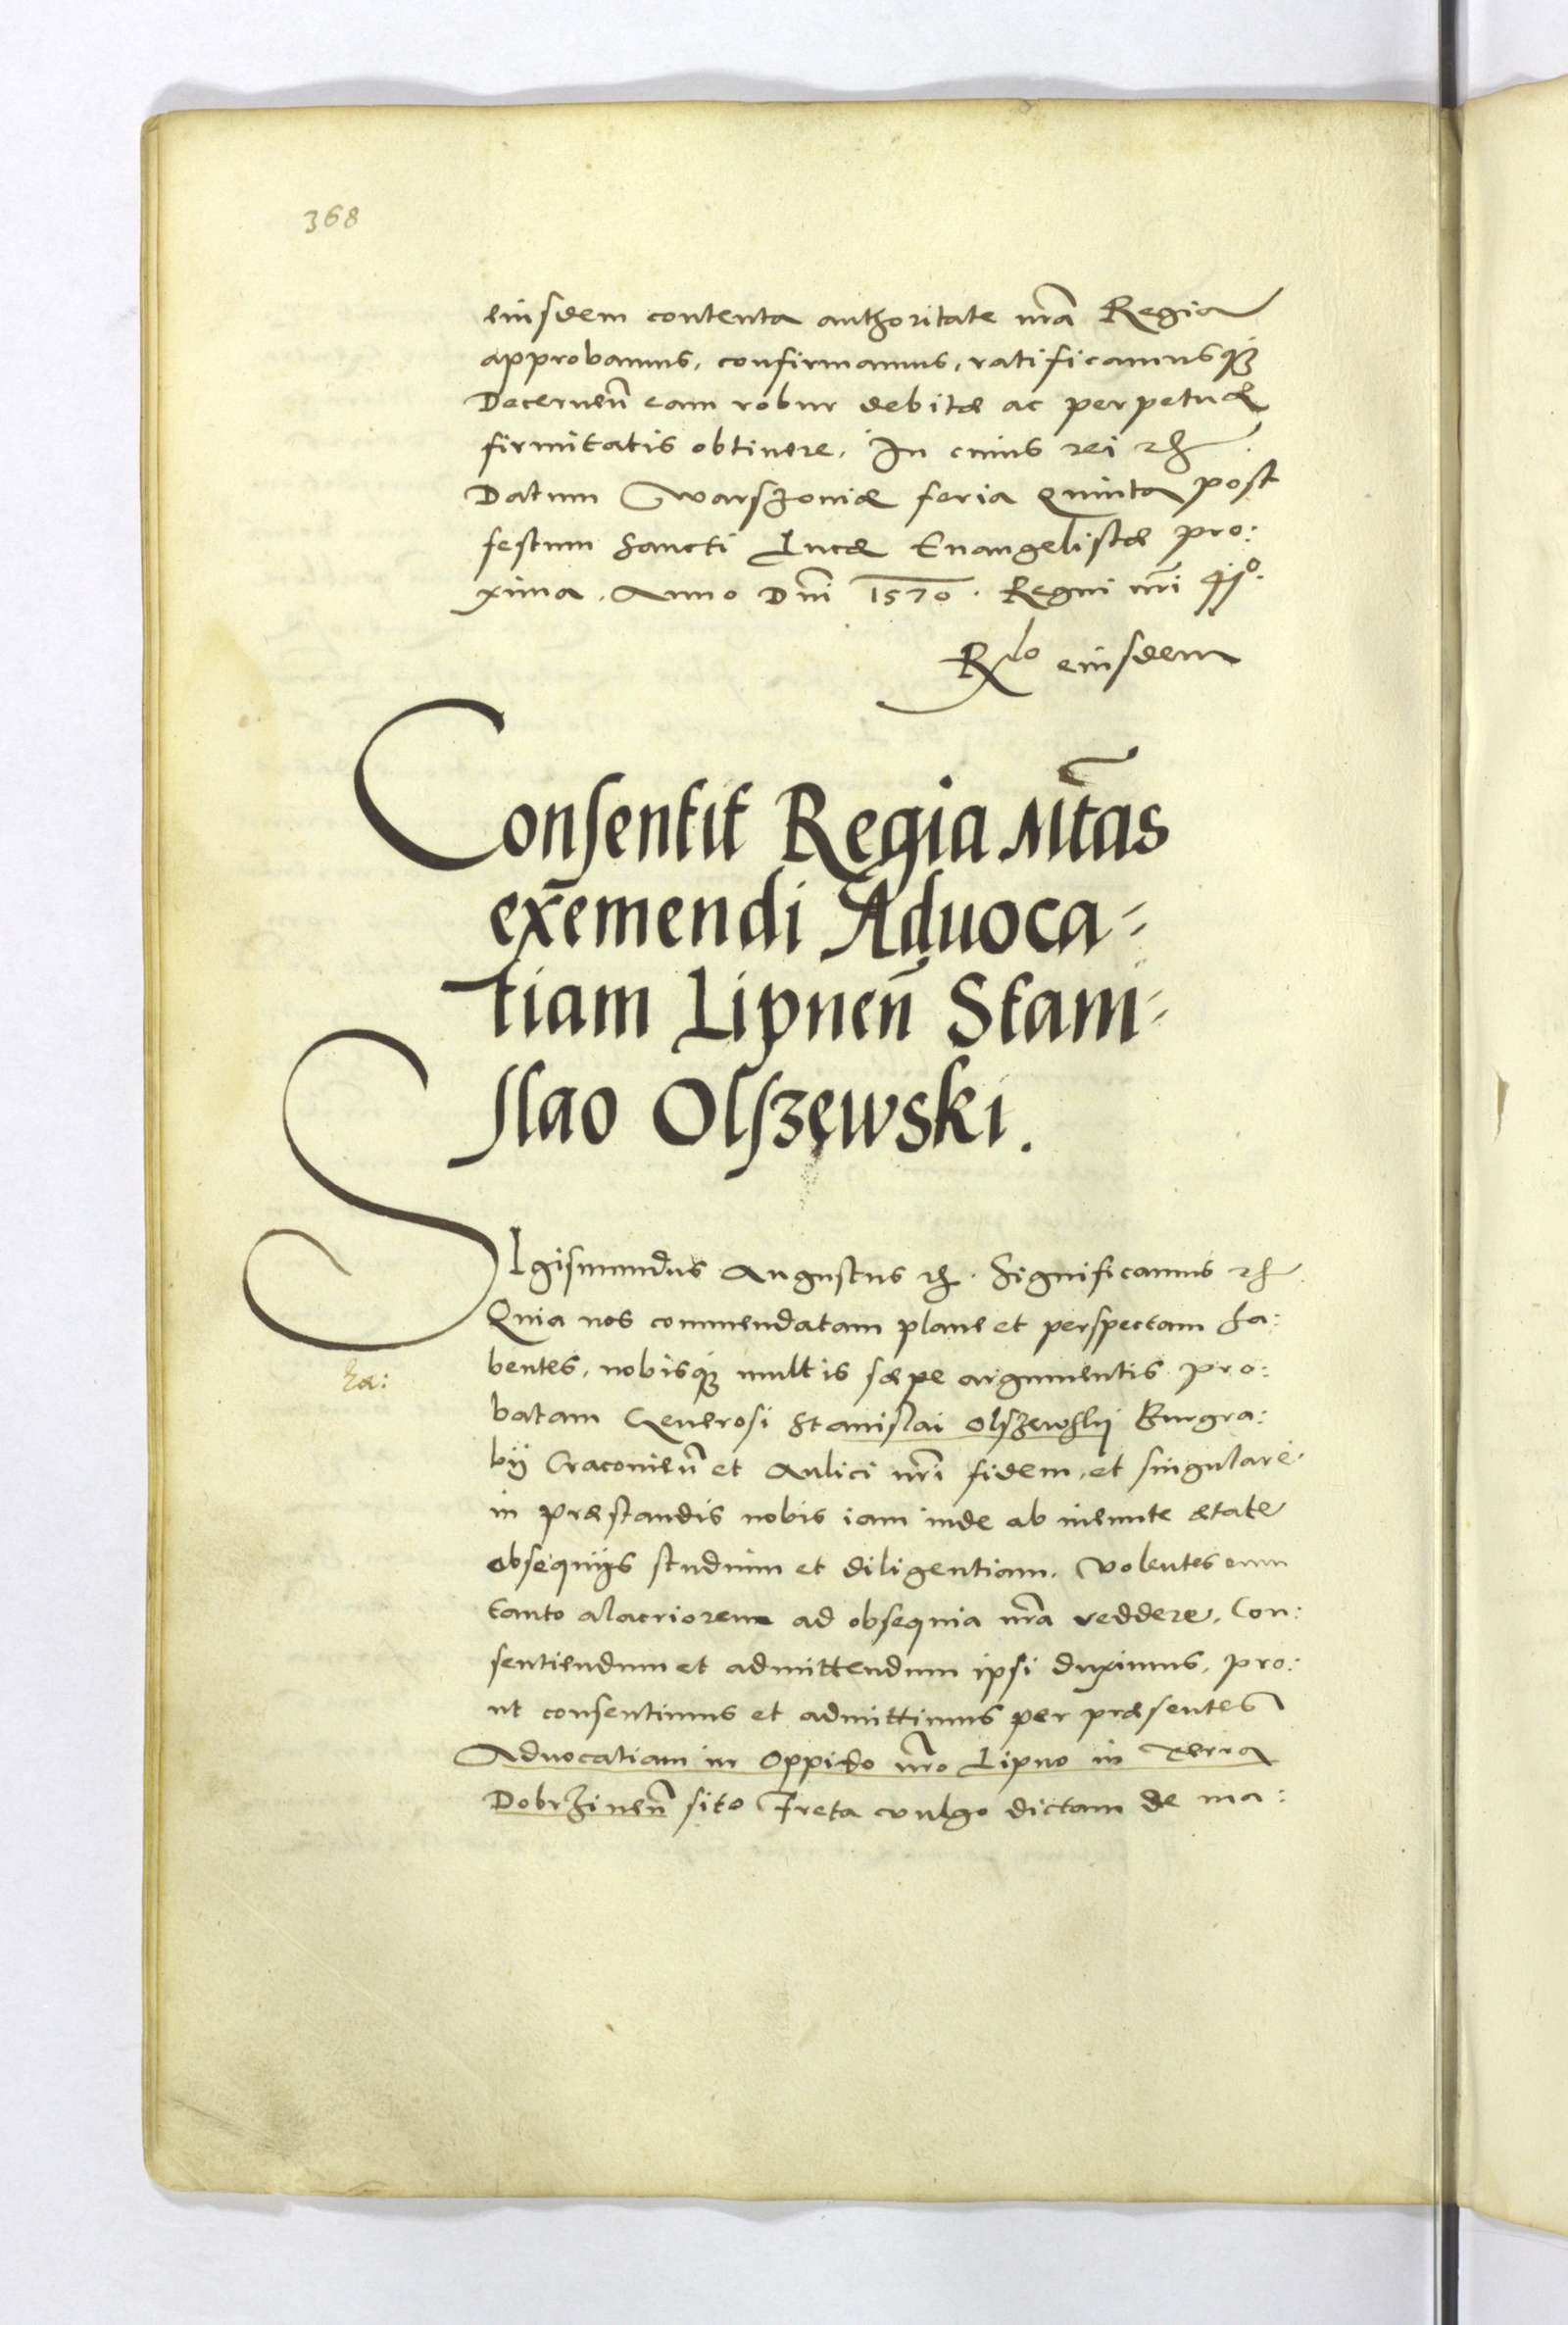 368
eiusdem contenta authoritate nr̃a Regia
approbamus, confirmamus, ratificamusq;
Decerneñ eam robur debitæ ac perpetuæ
firmitatis obtinere. In cuius rei etc.
Datum Warszoviæ feria quinta post
festum Sancti Lucæ Euangelistæ pro:
xima. Anno Dñi 1570. Regni nr̃i 41º.
Rlo eiusdem
Consentit Regia Mt̃as
exẽmendi Aduoca=
tiam Lipneñ Stani=
slao Olszęwski.
SIgismundus Augustus etc. Significamus etc.
Quia nos commendatam plane et perspectam ha:
bentes, nobisq; multis sæpe argumentis pro:
batam Generosi Stanislai Olszewskij Burgra:
bij Cracovieñ et Aulici nr̃i fidem, et singularẽ
in præstandis nobis iam inde ab ineunte ætate
obsequijs studium et diligentiam. Volentes eum
tanto alacriorem ad obsequia nr̃a reddere, Con:
sentiendum et admittendum ipsi duximus, pro:
ut consentimus et admittimus per præsentes
Aduocatiam in Oppido nr̃o Lipno in Terra
Dobrzineñ sito Freta vulgo dictam de ma: